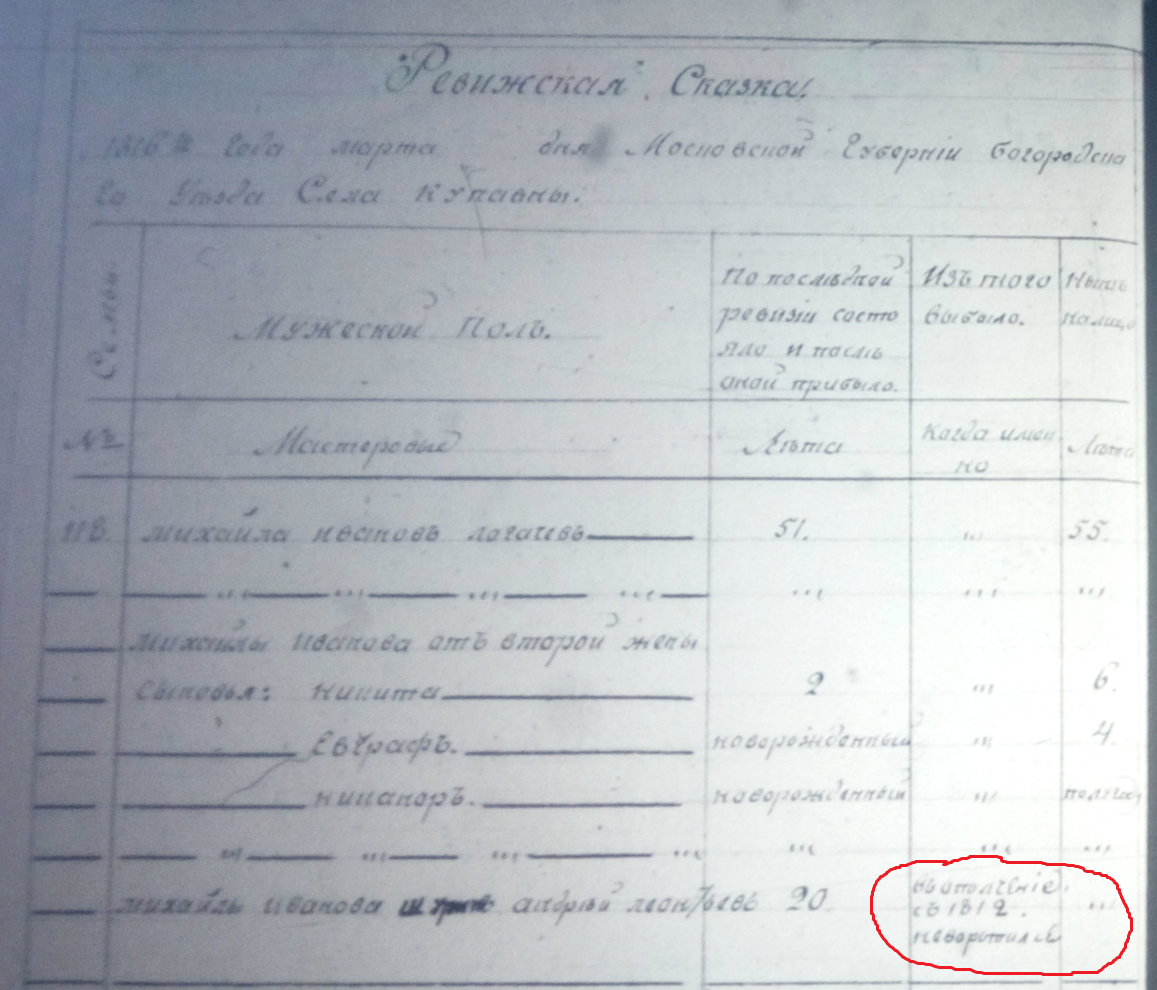 "Ревижская" Сказка.
1816го Года марта дня Московской Губернiи Богородска
го Уѣзда Села Купавны.
Семьи.
Мужеской Полъ.
По послѣдной
ревизiи состо
яло и послѣ
оной прибыло.
Изъ того
выбыло.
Нынѣ
налицо
№
Мастеровые
Лѣта
Когда имян
но
Лѣта
118. михайла ивановъ логачевъ 51. " 55.
михайлы иванова отъ второй жены
сыновья: никита 2 " 6.
Евграфъ. новорожденный " 4.
никаноръ. новорожденный " полгода
михайлы иванова андрѣй леонтьевъ 20.
въ ополченiе
съ 1812.
неворотился "